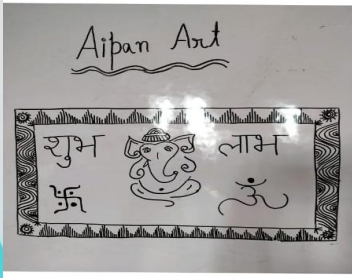 Aipan Art
शुभ लाभ
ॐ